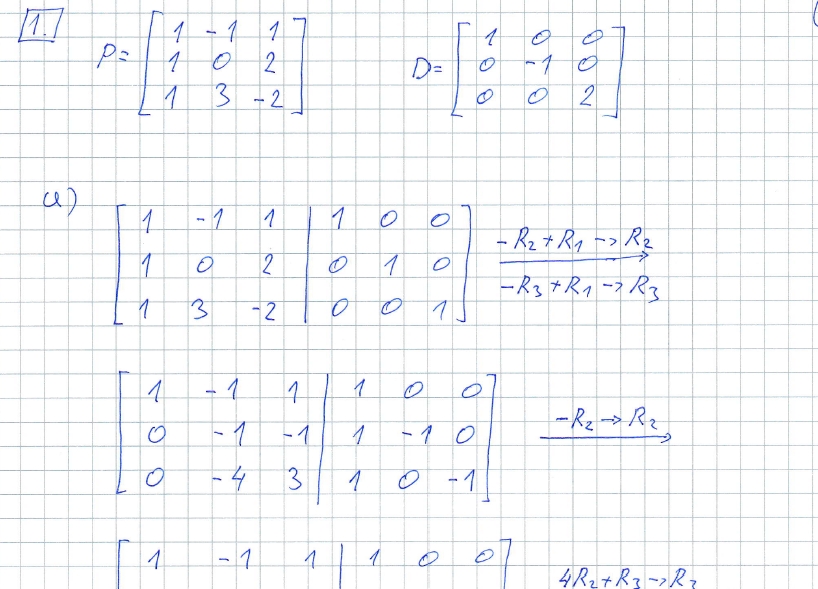 1.
P= [ 1 -1 1
1 0 2
1 3 -2 ]
D= [ 1 0 0
0 -1 0
0 0 2 ]
a)
[ 1 -1 1 | 1 0 0
1 0 2 | 0 1 0
1 3 -2 | 0 0 1 ]
-R₂+R₁→R₂
-R₃+R₁→R₃
[ 1 -1 1 | 1 0 0
0 -1 -1 | 1 -1 0
0 -4 3 | 1 0 -1 ]
-R₂→R₂
[ 1 -1 1 | 1 0 0 ]
4R₂+R₃→R₃